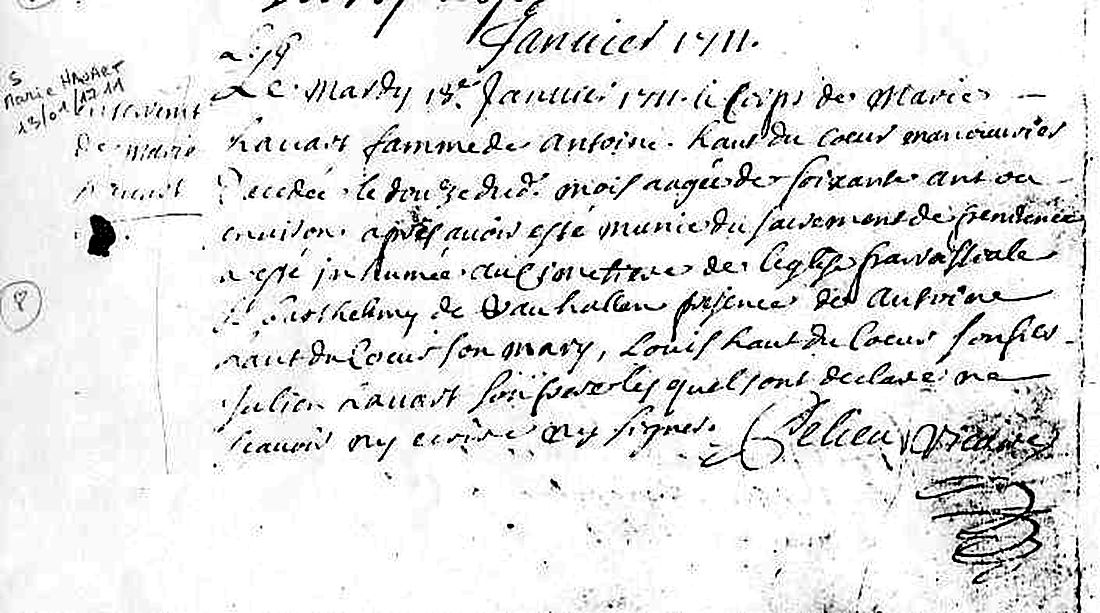 Januier 1711.
S
Marie HAVART
13/01/1711
de marie
Le Mardy 13e. Januier 1711. le Corps de Marie
hauart famme de Antoine haut du Coeur manouurier
decedée le douze dud. mois augée de soixante ant ou
enuiron apres auoir esté munie du sacrement de penitence
a esté inhumée au Cimettiere de leglise parroissialle
St Barthelmy de Vauhallan presence de Antoine
haut du Coeur son mary, Louis haut du Coeur son fies
Julien hauart son frere les quel sont declare ne
scauoir ny ecrire ny signer. Pelieu Vicaire
P